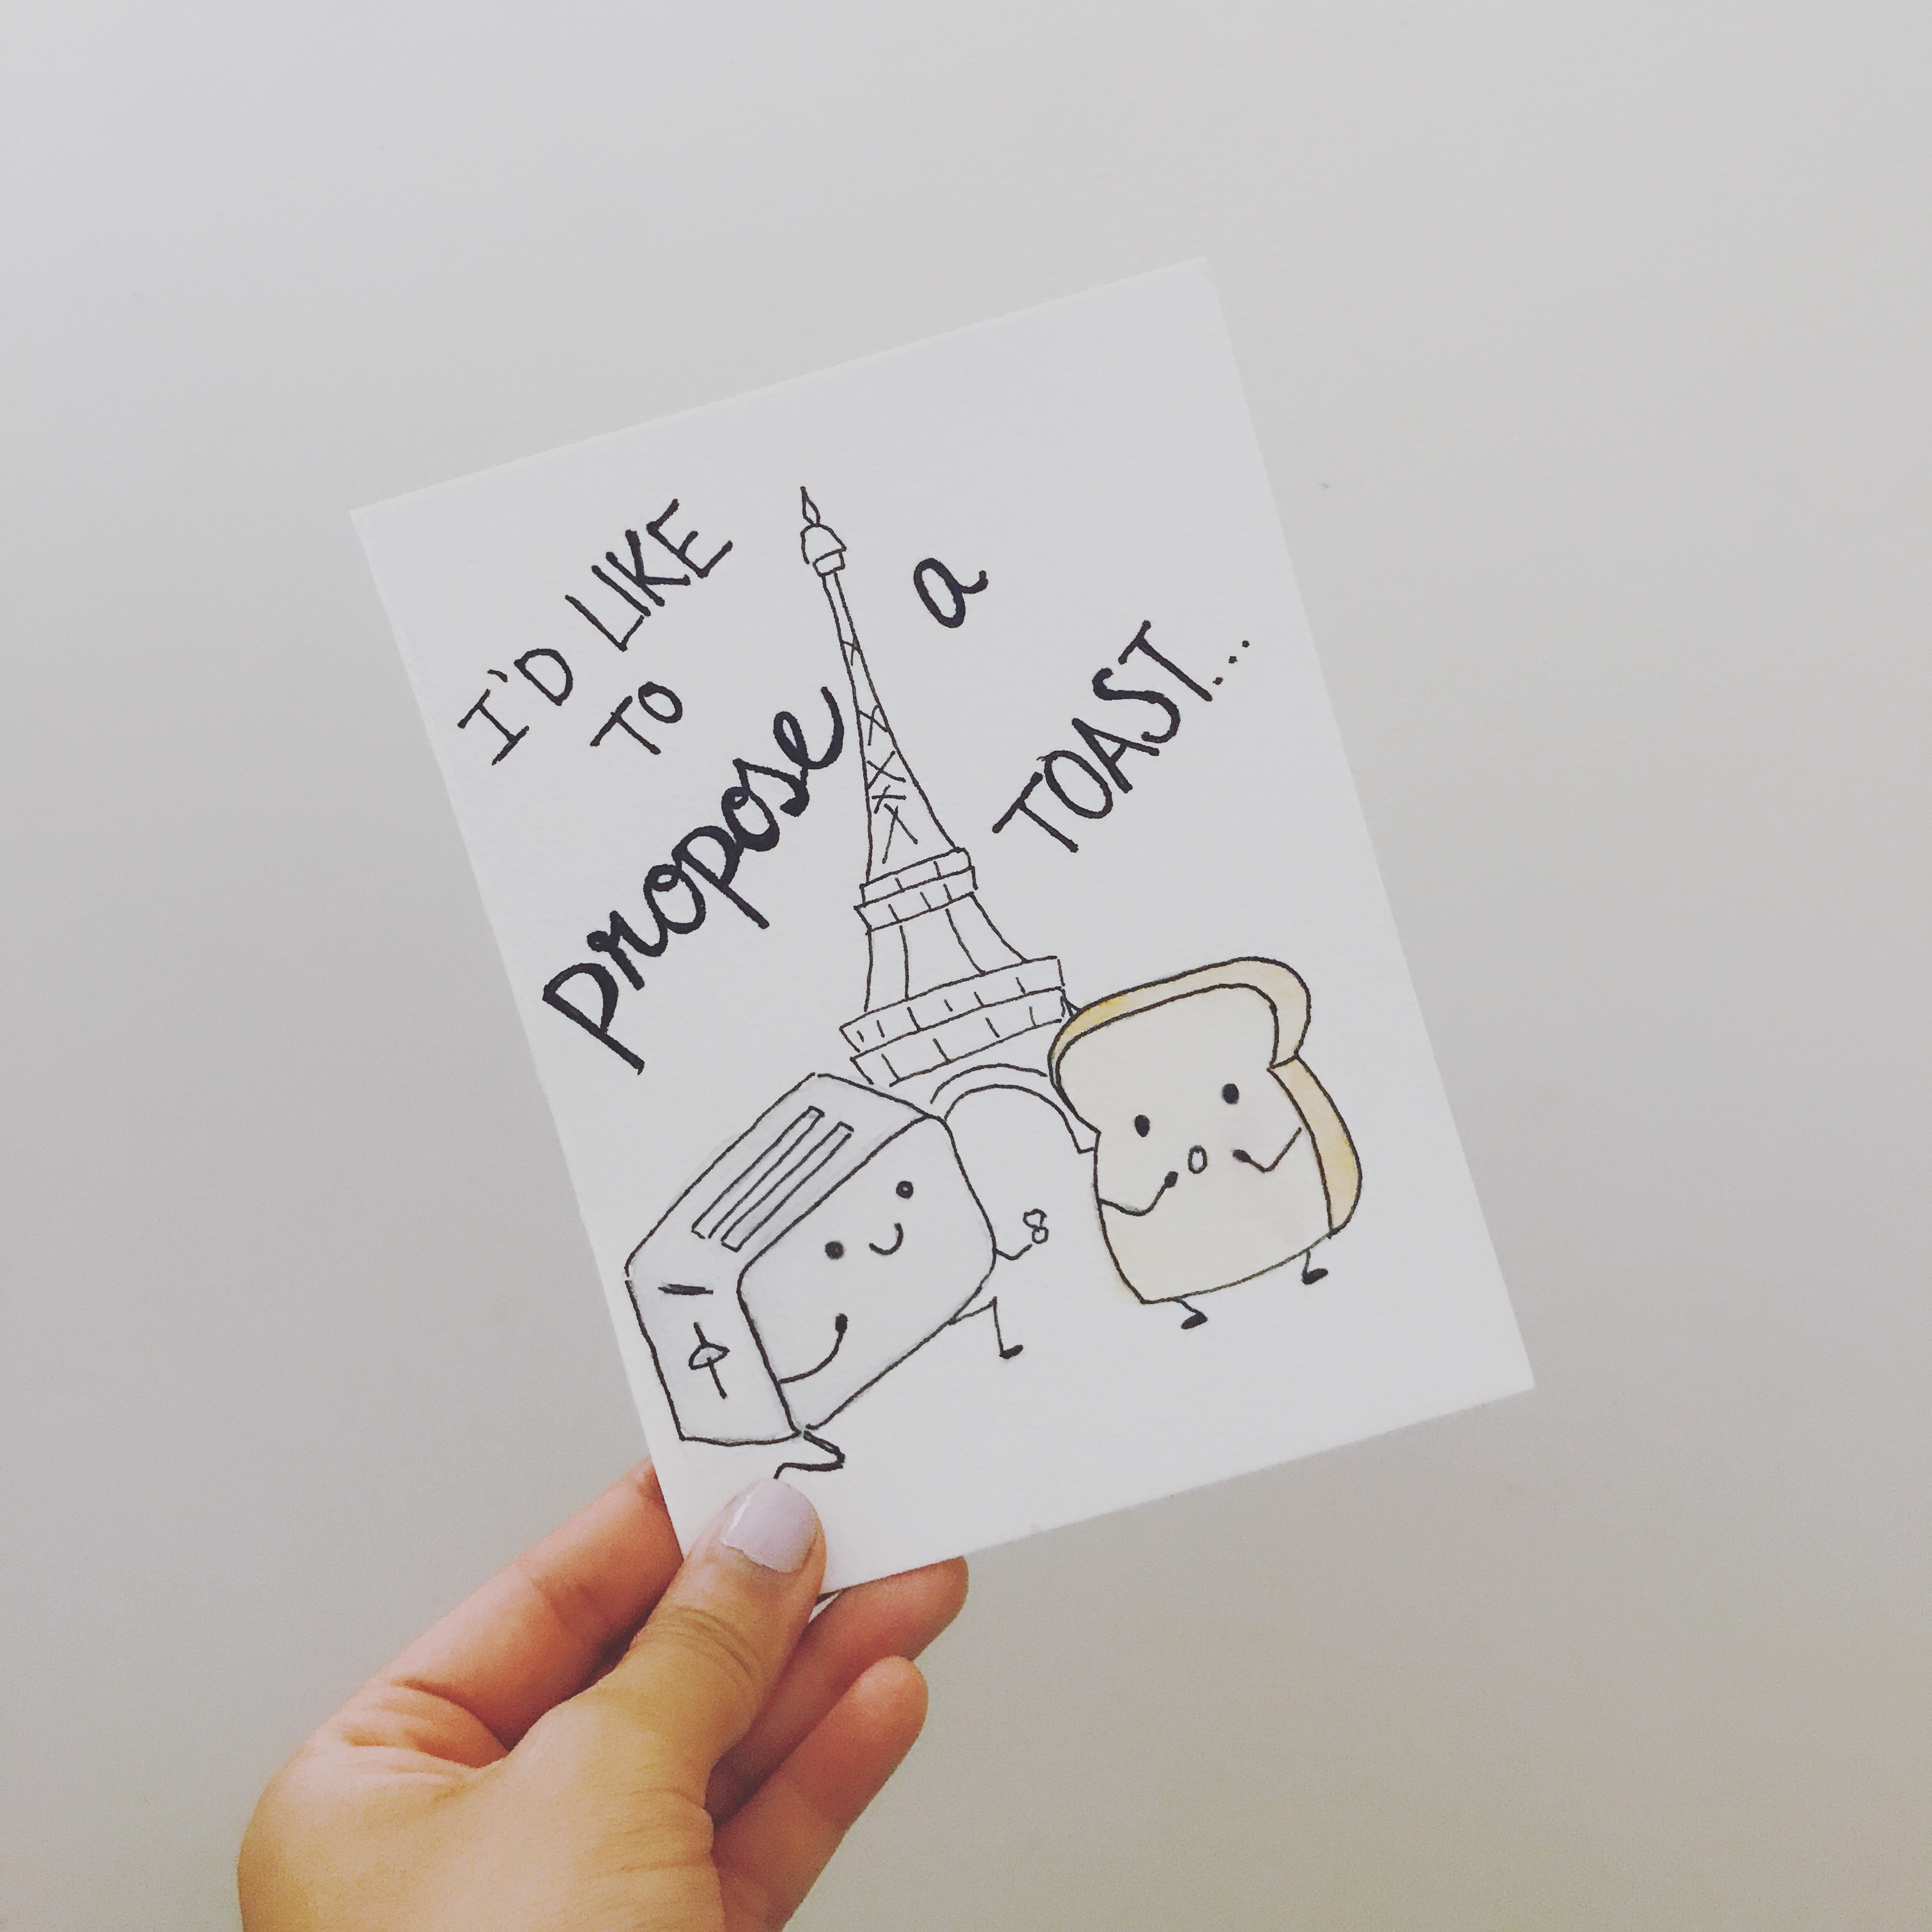 I'D LIKE
TO
propose
a
TOAST...